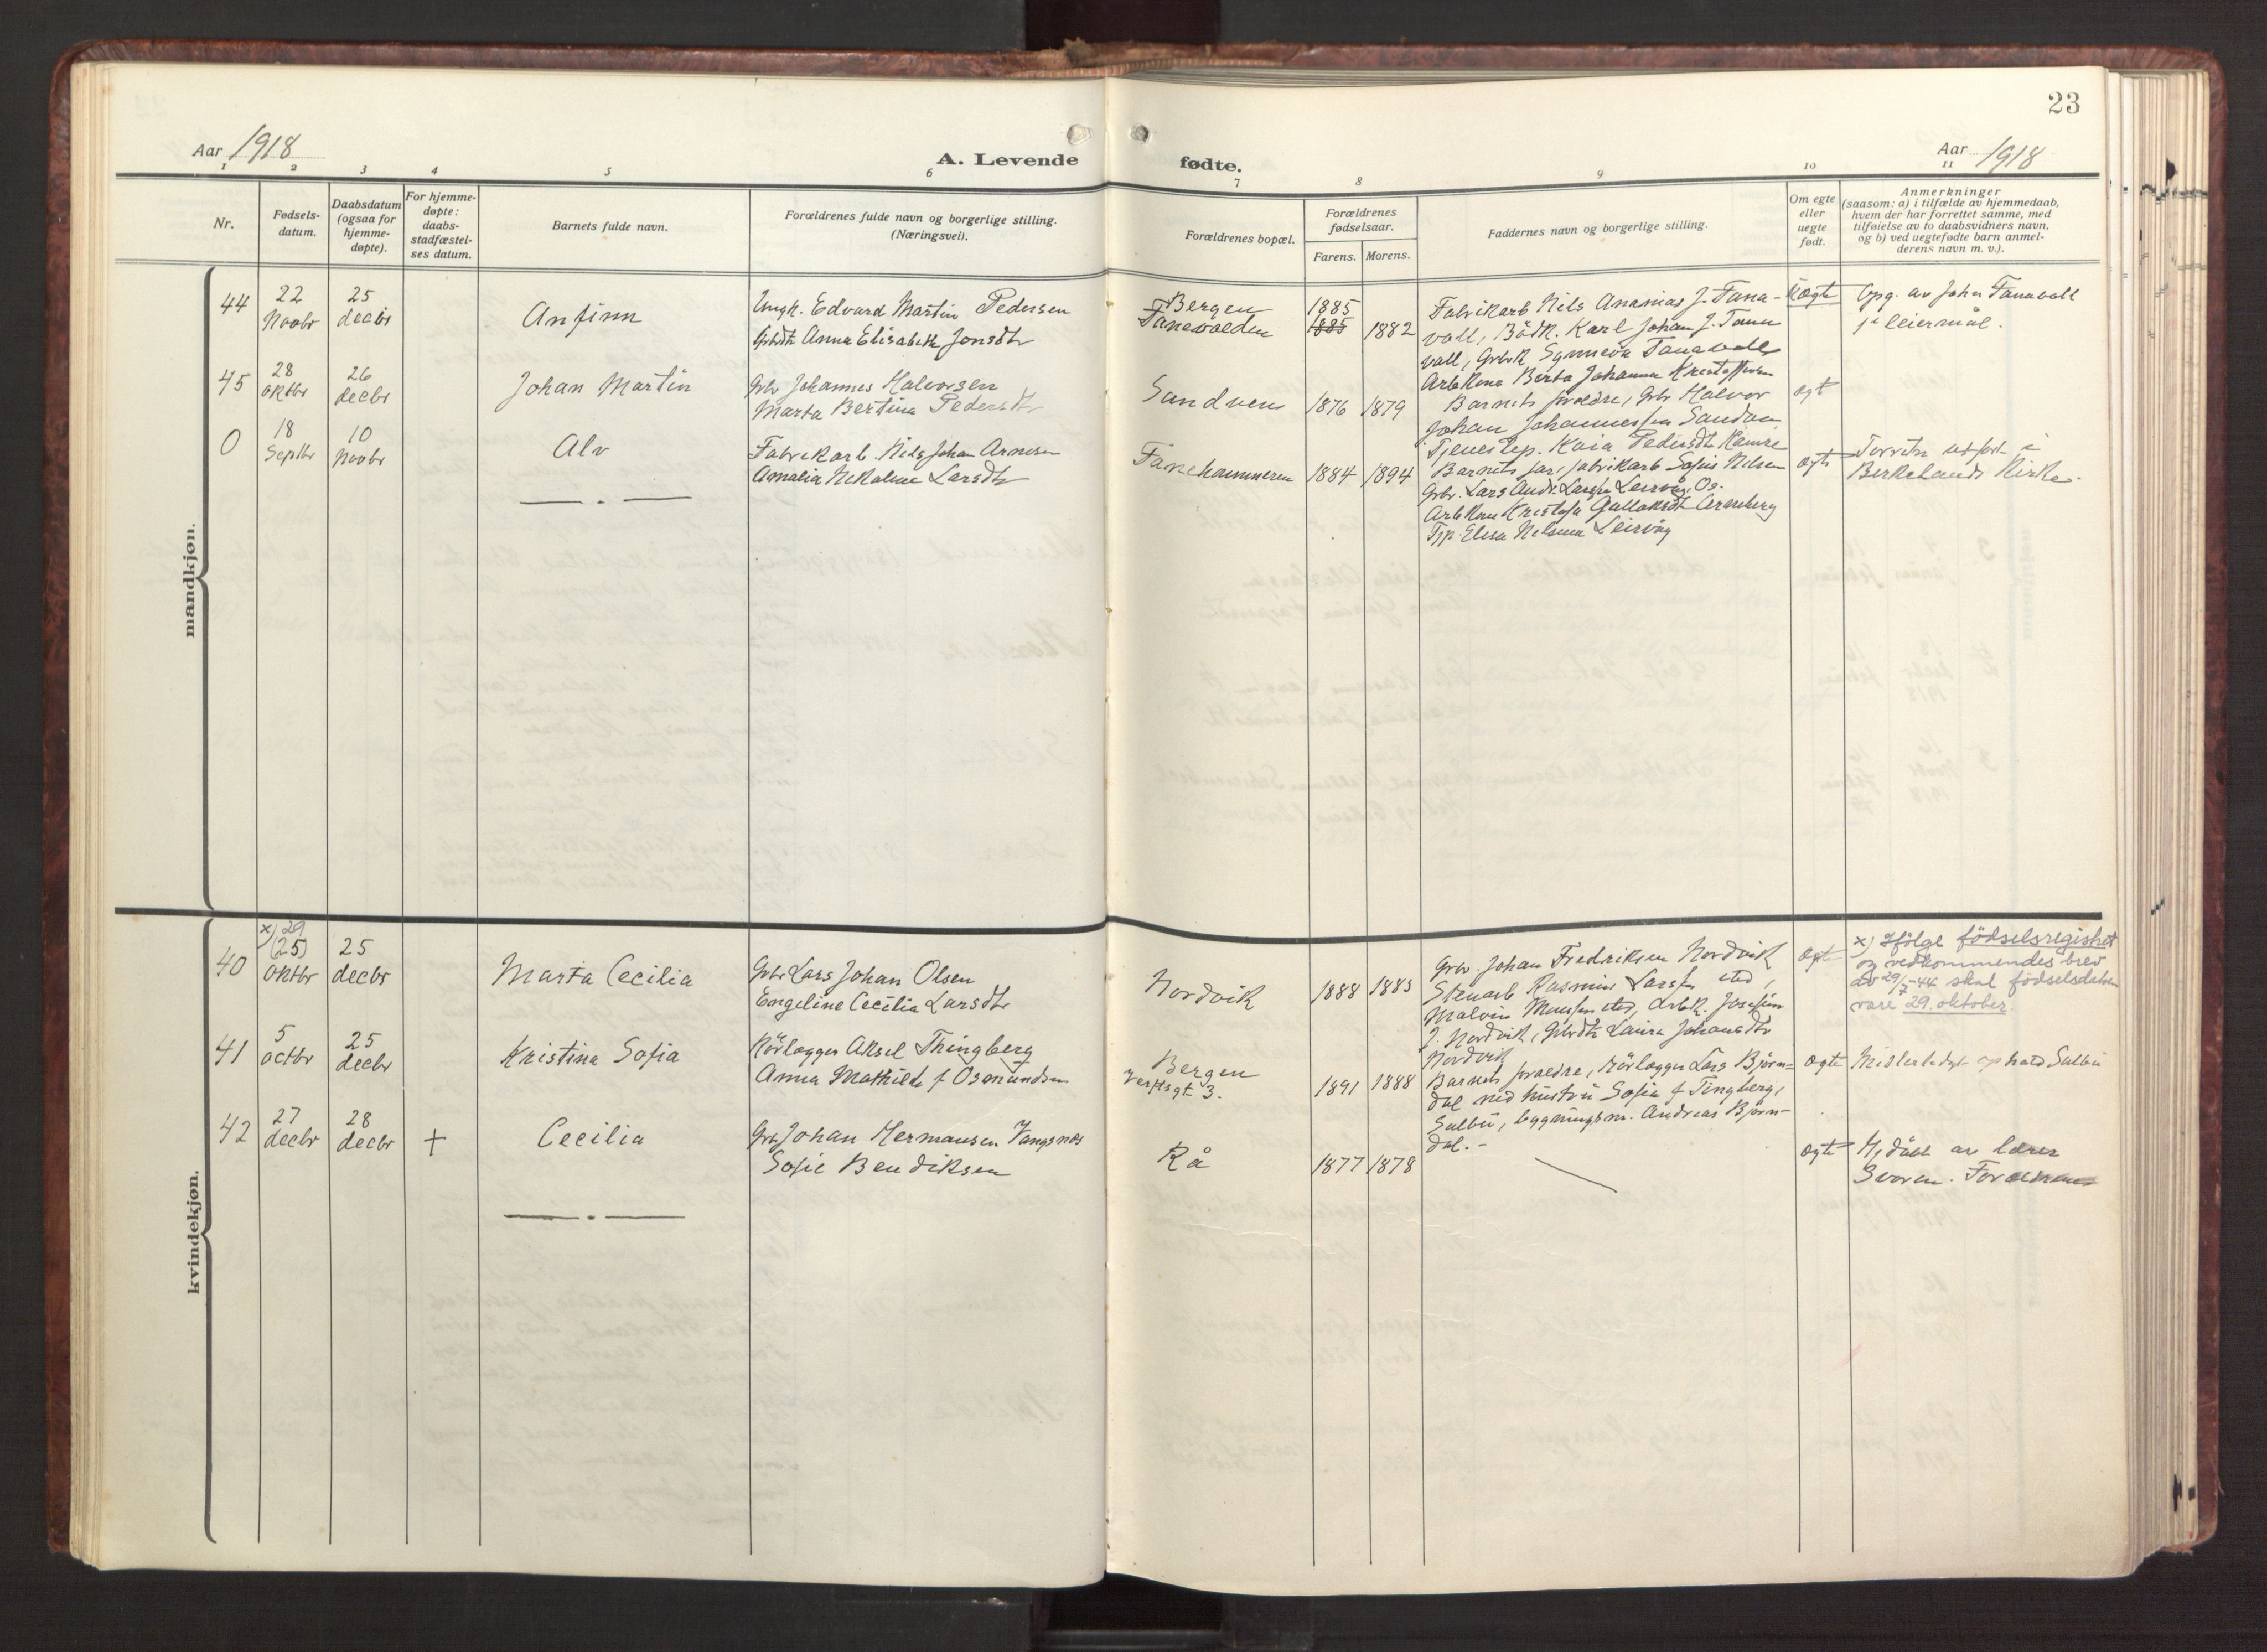 23
Aar 1918
A. Levende
fødte.
Aar 1918
1 2 3 4 5 6 7 8 9 10 11
Nr.
Fødsels-
datum.
Daabsdatum
(ogsaa for
hjemme-
døpte).
For hjemme-
døpte:
daabs-
stadfæstel-
ses datum.
Barnets fulde navn.
Forældrenes fulde navn og borgerlige stilling.
(Næringsvei).
Forældrenes bopæl.
Forældrenes
fødselsaar.
Farens. Morens.
Faddernes navn og borgerlige stilling.
Om egte
eller
uegte
født.
Anmerkninger
(saasom: a) i tilfælde av hjemmedaab,
hvem der har forrettet samme, med
tilføielse av to daabsvidners navn,
og b) ved uegtefødte barn anmel-
derens navn m. v.).
mandkjøn.
44
22
Novbr
25
decbr
Anfinn
Ungk. Edvard Martin Pedersen
Gbrdtr Anna Elisabeth Jonsdtr
Bergen
Fanevolden
1885
1885
1882
Fabrikarb Nils Ananias J. Fana-
vall, Bödk. Karl Johan J. Fana
vall, Gbrk Synneva Fanavall
Arbkone Berta Johanna
Uægte
Opg. av John Fanavoll
1ste leiermål.
45
28
oktbr
26
decbr
Johan Martin
Gbr Johannes Halvorsen
Marta Bertina Pedersdtr
Sandven
1876
1879
Barnets foraeldre, Gbr Halvor
Johan Johannessen Sandven
Tjenestep. Kaia Pedersdtr
egt
0
18
Septbr
10
Novbr
Alv
Fabrikarb. Nils Johan Arnesen
Amalia Nikoline Larsdtr
Fanehammeren
1884
1894
Barnets far, fabrikarb Sofus Nilsen
Gbr. Lars Andr. Larsen Leirvåg, Os.
Arbkone Kristofa Arneberg
Tjp. Elisa Nilsena Leirvåg
egte
Forretn utført i
Birkelands Kirke.
kvindekjøn.
40
x) 29
(25)
oktbr
25
decbr
Marta Cecilia
Gbr Lars Johan Olsen
Engeline Cecilia Larsdtr
Nordvik
1888
1883
Gbr. Johan Fredriksen Nordvik
Stenarb Rasmus Larsen sted,
Malvin Monsen sted, Arbk. Josefine
J. Nordvik, Gbrdtr Laura Johansdtr
Nordvik
egte
x) Ifölge födselsregistret
og vedkommendes brev
av 29/7-44 skal födselsdatoen
være 29. oktober.
41
5
octbr
25
decbr
Kristina Sofia
Rörlægger Aksel Thingberg
Anna Mathilde f Osmundsen
Bergen
Verftsgt 3.
1891
1888
Barnets foraeldre, rörlægger Lars Björn-
dal med hustru Sofia f Tingberg,
Sælbu, bygningsm. Andreas Björn-
dal. -
egte
Midlertidigt ophold Sælbu
42
27
decbr
28
decbr
+
Cecilia
Gbr Johan Hermansen Vangsnes
Sofie Bendiksen
Rå
1877
1878
egte
Hj.döbt av lærer
Svoren. Forældrenes